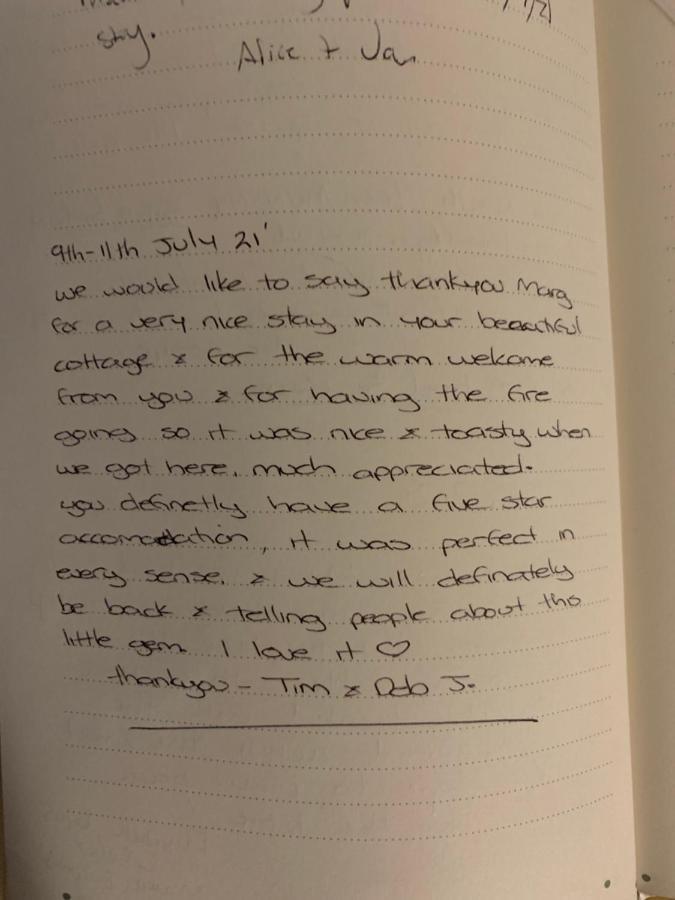 stay.
Alice + Jan
9th-11th July 21'
we would like to say thankyou Marg
for a very nice stay in your beautiful
cottage & for the warm welcome
from you & for having the fire
going so it was nice & toasty when
we got here, much appreciated.
you definetly have a five star
accomodation, it was perfect in
every sense, & we will definately
be back & telling people about this
little gem I love it ♡
thankyou - Tim & Deb J.